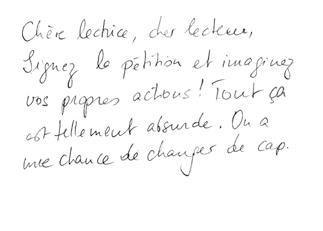 Chère lectrice, cher lecteur,
Signez la pétition et imaginez
vos propres actions ! Tout ça
est tellement absurde. On a
une chance de changer de cap.